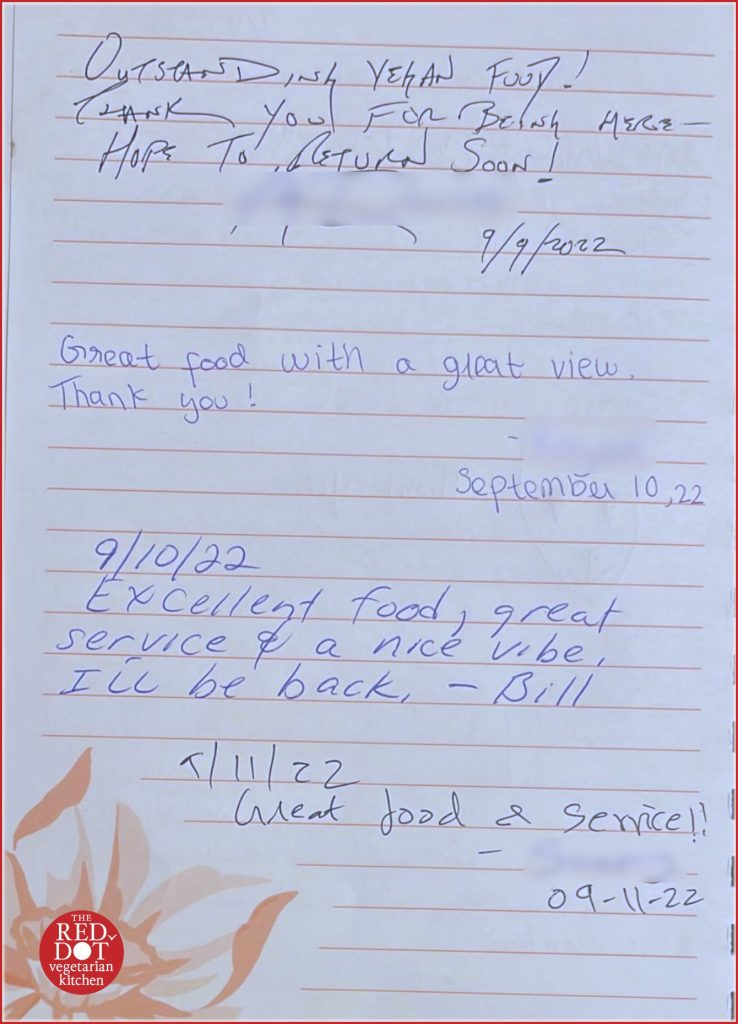 OUTSTANDING VEGAN FOOD!
THANK YOU FOR BEING HERE—
HOPE TO RETURN SOON!
9/9/2022
Great food with a great view.
Thank you!
-
September 10, 22
9/10/22
Excellent food, great
service & a nice vibe.
I'll be back. - Bill
/11/22
Great food & Service!!
-
09-11-22
THE
RED
DOT
vegetarian
kitchen